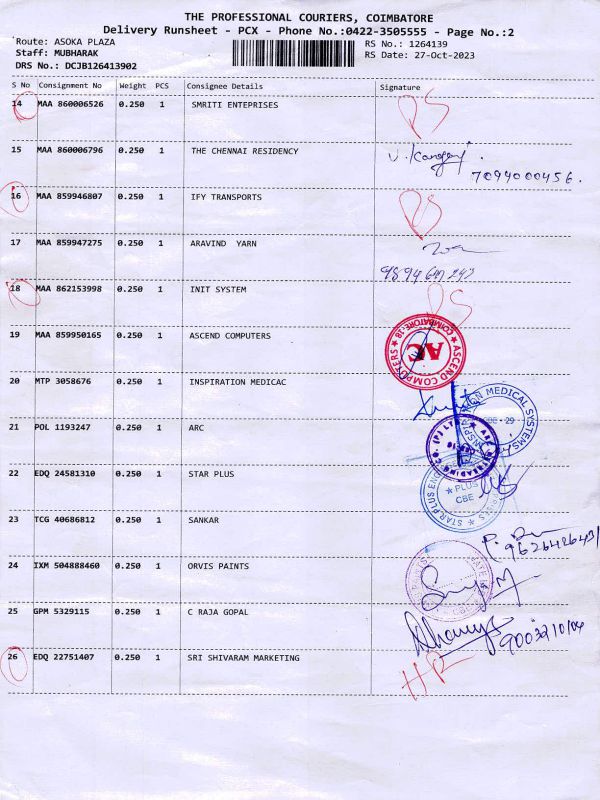 THE PROFESSIONAL COURIERS, COIMBATORE
Delivery Runsheet - PCX - Phone No.:0422-3505555 - Page No.:2
Route: ASOKA PLAZA
RS No.: 1264139
Staff: MUBHARAK
RS Date: 27-Oct-2023
DRS No.: DCJB126413902
S No Consignment No Weight PCS Consignee Details Signature
14 MAA 860006526 0.250 1 SMRITI ENTEPRISES RS
15 MAA 860006796 0.250 1 THE CHENNAI RESIDENCY
7094000456.
16 MAA 859946807 0.250 1 IFY TRANSPORTS RS
17 MAA 859947275 0.250 1 ARAVIND YARN
18 MAA 862153998 0.250 1 INIT SYSTEM RS
19 MAA 859950165 0.250 1 ASCEND COMPUTERS
ASCEND COMPUTERS COIMBATORE-18 AC
20 MTP 3058676 0.250 1 INSPIRATION MEDICAC
MEDICAL SYSTEMS
21 POL 1193247 0.250 1 ARC
22 EDQ 24581310 0.250 1 STAR PLUS
STAR PLUS PLUS CBE
23 TCG 40686812 0.250 1 SANKAR
24 IXM 504888460 0.250 1 ORVIS PAINTS
25 GPM 5329115 0.250 1 C RAJA GOPAL
26 EDQ 22751407 0.250 1 SRI SHIVARAM MARKETING HR